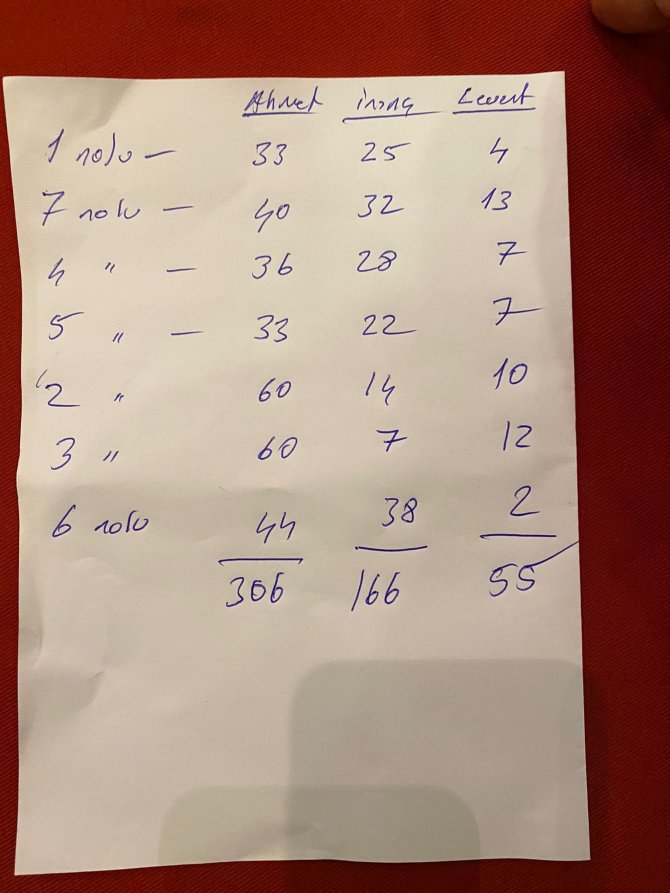 Ahmet inanç Levent
1 nolu — 33 25 4
7 nolu — 40 32 13
4 " — 36 28 7
5 " — 33 22 7
2 " 60 14 10
3 " 60 7 12
6 nolu 44 38 2
306 166 55